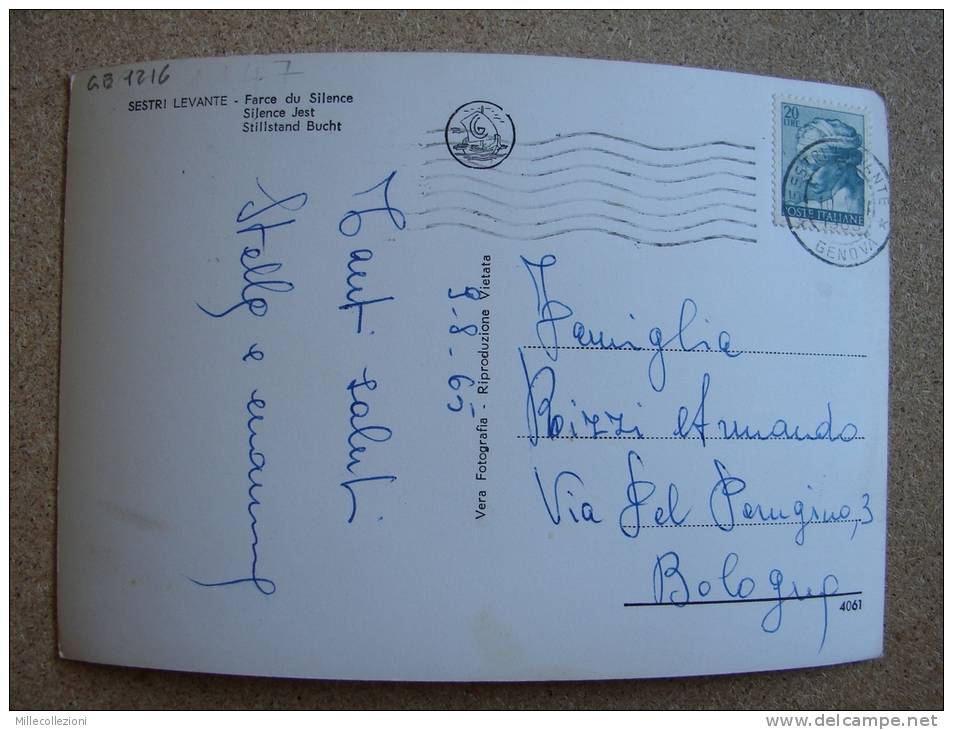 GB 1216
SESTRI LEVANTE - Farce du Silence
Silence Jest
Stillstand Bucht
G
20
LIRE
POSTE ITALIANE
GENOVA
Tanti saluti
Stella e
9-8-65
Vera Fotografia - Riproduzione Vietata
Famiglia
Rizzi Armando
Via Del Perugino, 3
Bologna
4061
Millecollezioni
www.delcampe.net